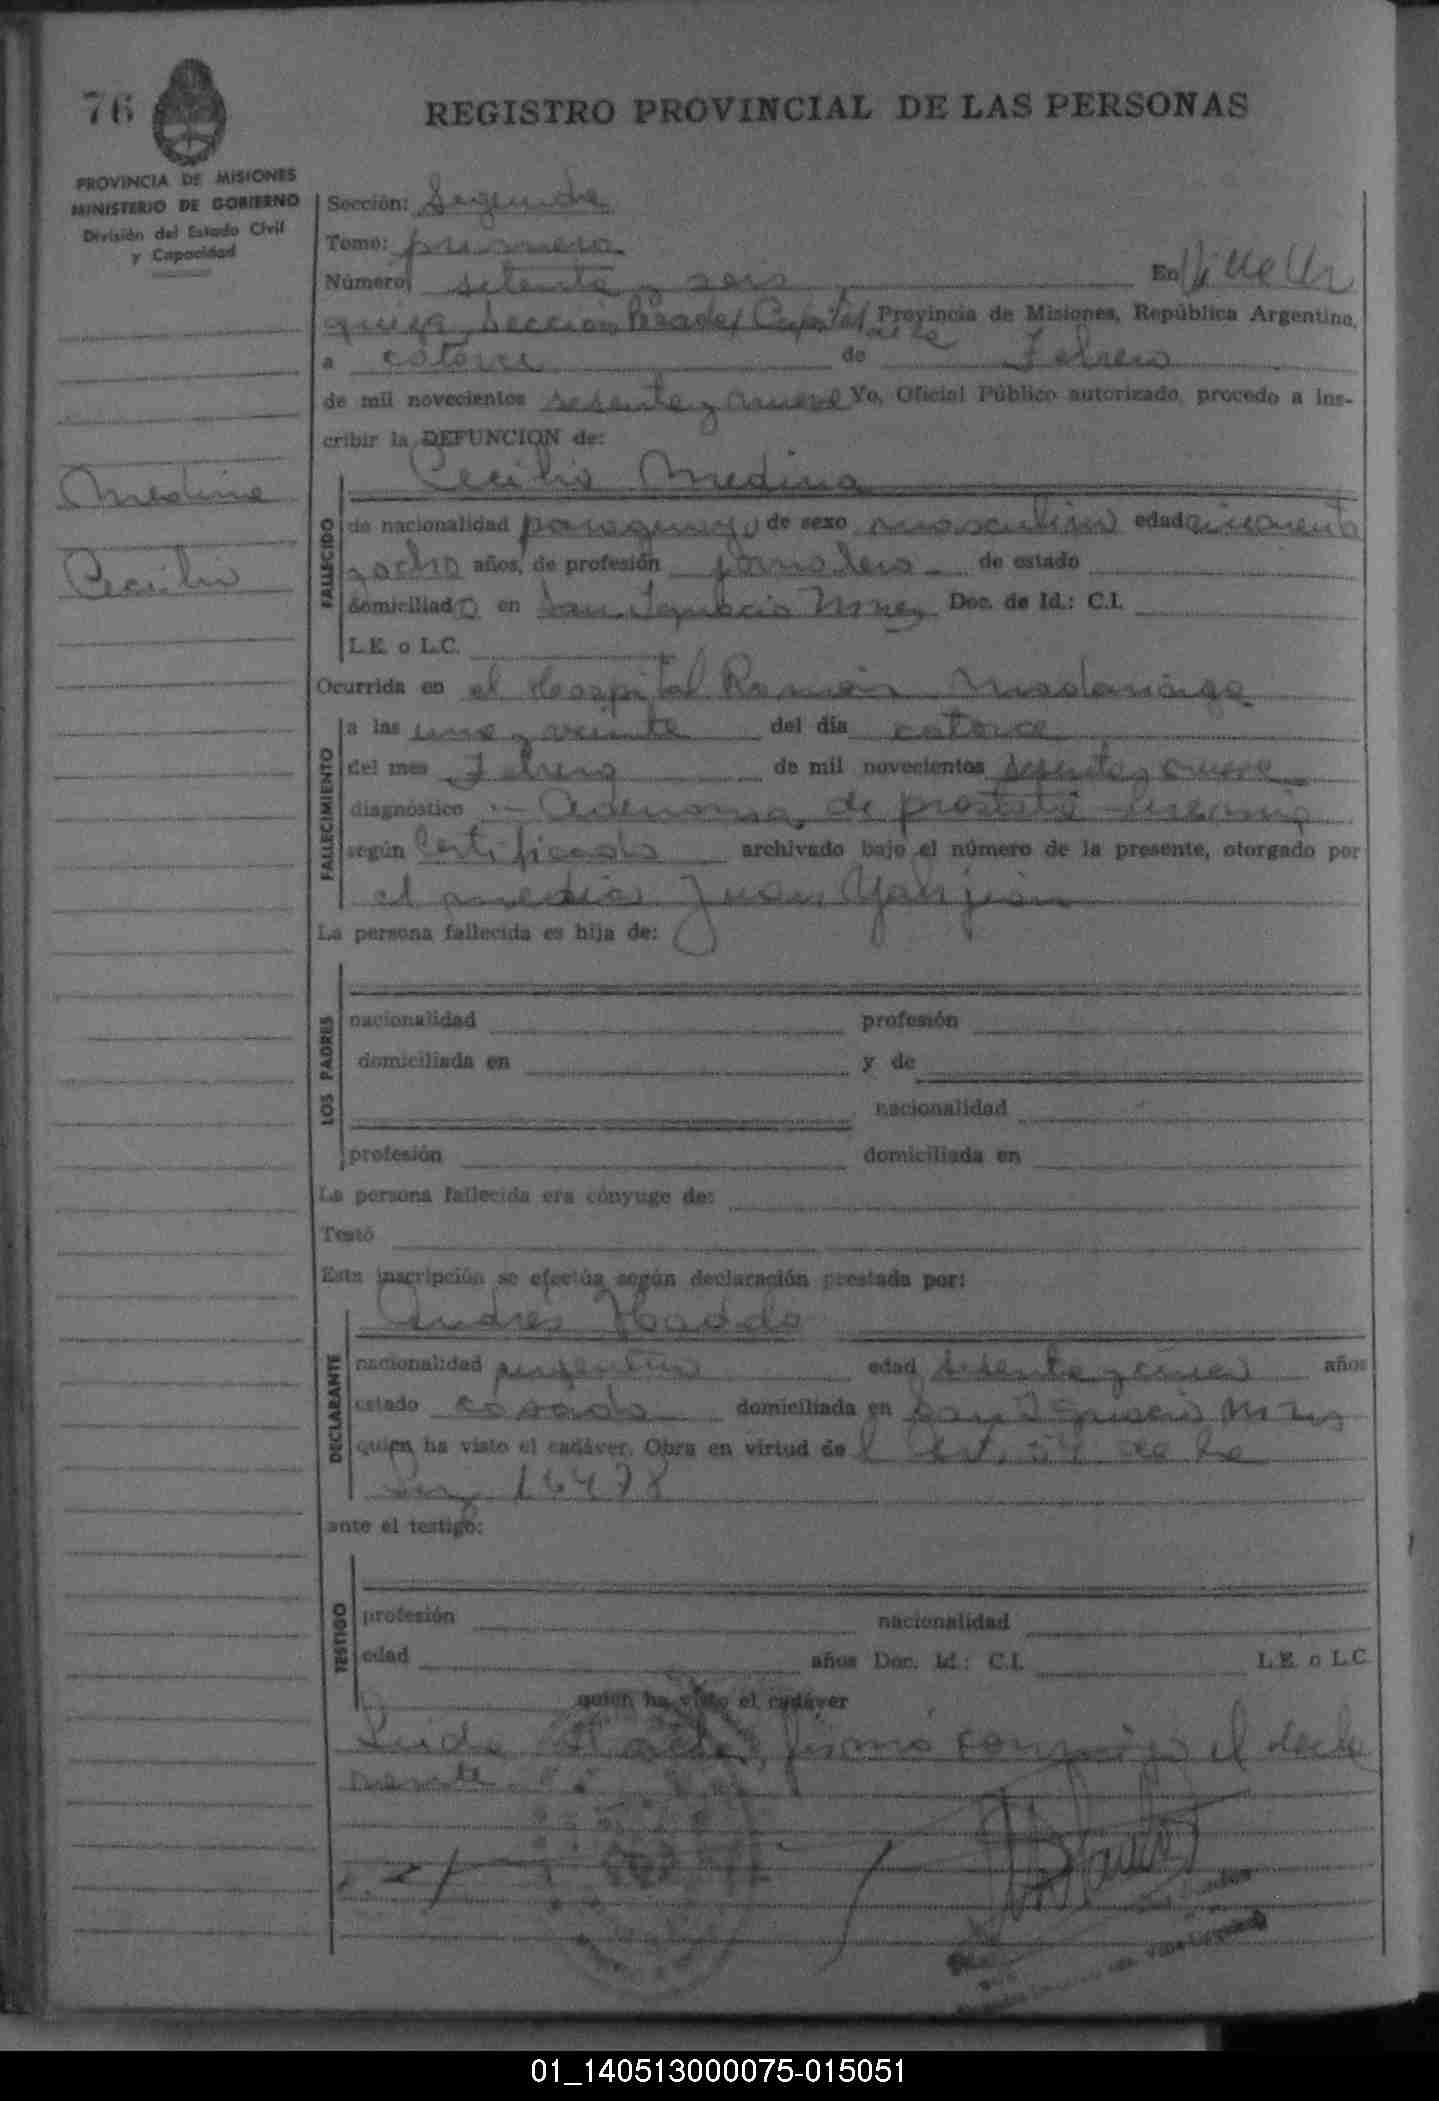 76
REGISTRO PROVINCIAL DE LAS PERSONAS
PROVINCIA DE MISIONES
MINISTERIO DE GOBIERNO
División del Estado Civil
y Capacidad
Sección: Segunda
Tomo: primero
Número setenta y seis En Villa Ur
quiza, Sección Capital Provincia de Misiones, República Argentina,
a catorce de Febrero
de mil novecientos sesenta y nueve Yo, Oficial Público autorizado, procedo a ins-
cribir la DEFUNCION de:
Cecilio Medina
Medina
Cecilio
FALLECIDO
de nacionalidad paraguayo de sexo masculino edad cincuenta
y ocho años, de profesión jornalero de estado
domiciliado en San Ignacio Mnes Doc. de Id.: C.I.
L.E. o L.C.
Ocurrida en el Hospital Ramón Madariaga
FALLECIMIENTO
a las una y veinte del día catorce
del mes Febrero de mil novecientos sesenta y nueve
diagnóstico Adenoma de prostata uremia
según Certificado archivado bajo el número de la presente, otorgado por
el medico Juan
La persona fallecida es hija de:
LOS PADRES
nacionalidad profesión
domiciliada en y de
nacionalidad
profesión domiciliada en
La persona fallecida era cónyuge de:
Testó
Esta inscripción se efectúa según declaración prestada por:
DECLARANTE
Andrés Haddo
nacionalidad argentino edad sesenta y cinco años
estado casado domiciliada en San Ignacio Mnes
quien ha visto el cadáver. Obra en virtud del Art. 54 de la
Ley 14478
ante el testigo:
TESTIGO
profesión nacionalidad
edad años Doc. Id.: C.I. L.E. o L.C.
quien ha visto el cadáver
Leida el acta, firmó conmigo el decla
rante
01_140513000075-015051